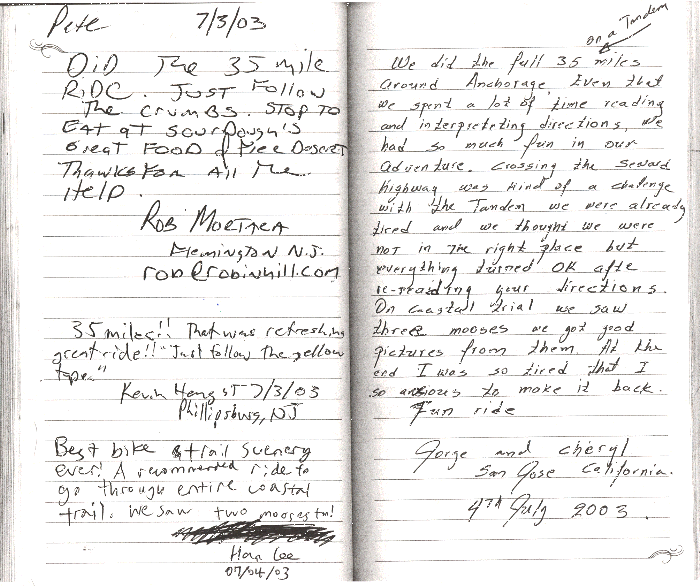 Pete 7/3/03
DiD The 35 mile
RiDe. Just Follow
The crumbs. STOP TO
EAT at SourDough's
Great FOOD & Free Desert
Thanks For All The
Help.
Rob
Flemington N.J.
rob@robinhill.com
35 miles!! That was refreshing
great ride!! "Just follow the yellow
tape"
Kevin 7/3/03
Phillipsburg, NJ
Best bike & trail scenery
ever! A recommended ride to
go through entire coastal
trail. We saw two mooses to!
Han Lee
07/04/03
on a Tandem
We did the full 35 miles
around Anchorage. Even that
we spent a lot of time reading
and interpreteting directions, we
had so much fun in our
adventure. Crossing the Seward
highway was kind of a challenge
with the Tandem we were already
tired and we thought we were
not in the right place but
everything turned OK afte
re-reading your directions.
On coastall trial we saw
three mooses we got good
pictures from them. At the
end I was so tired that I
so anxious to make it back.
Fun ride
Jorge and cheryl
San Jose California.
4TH July 2003.